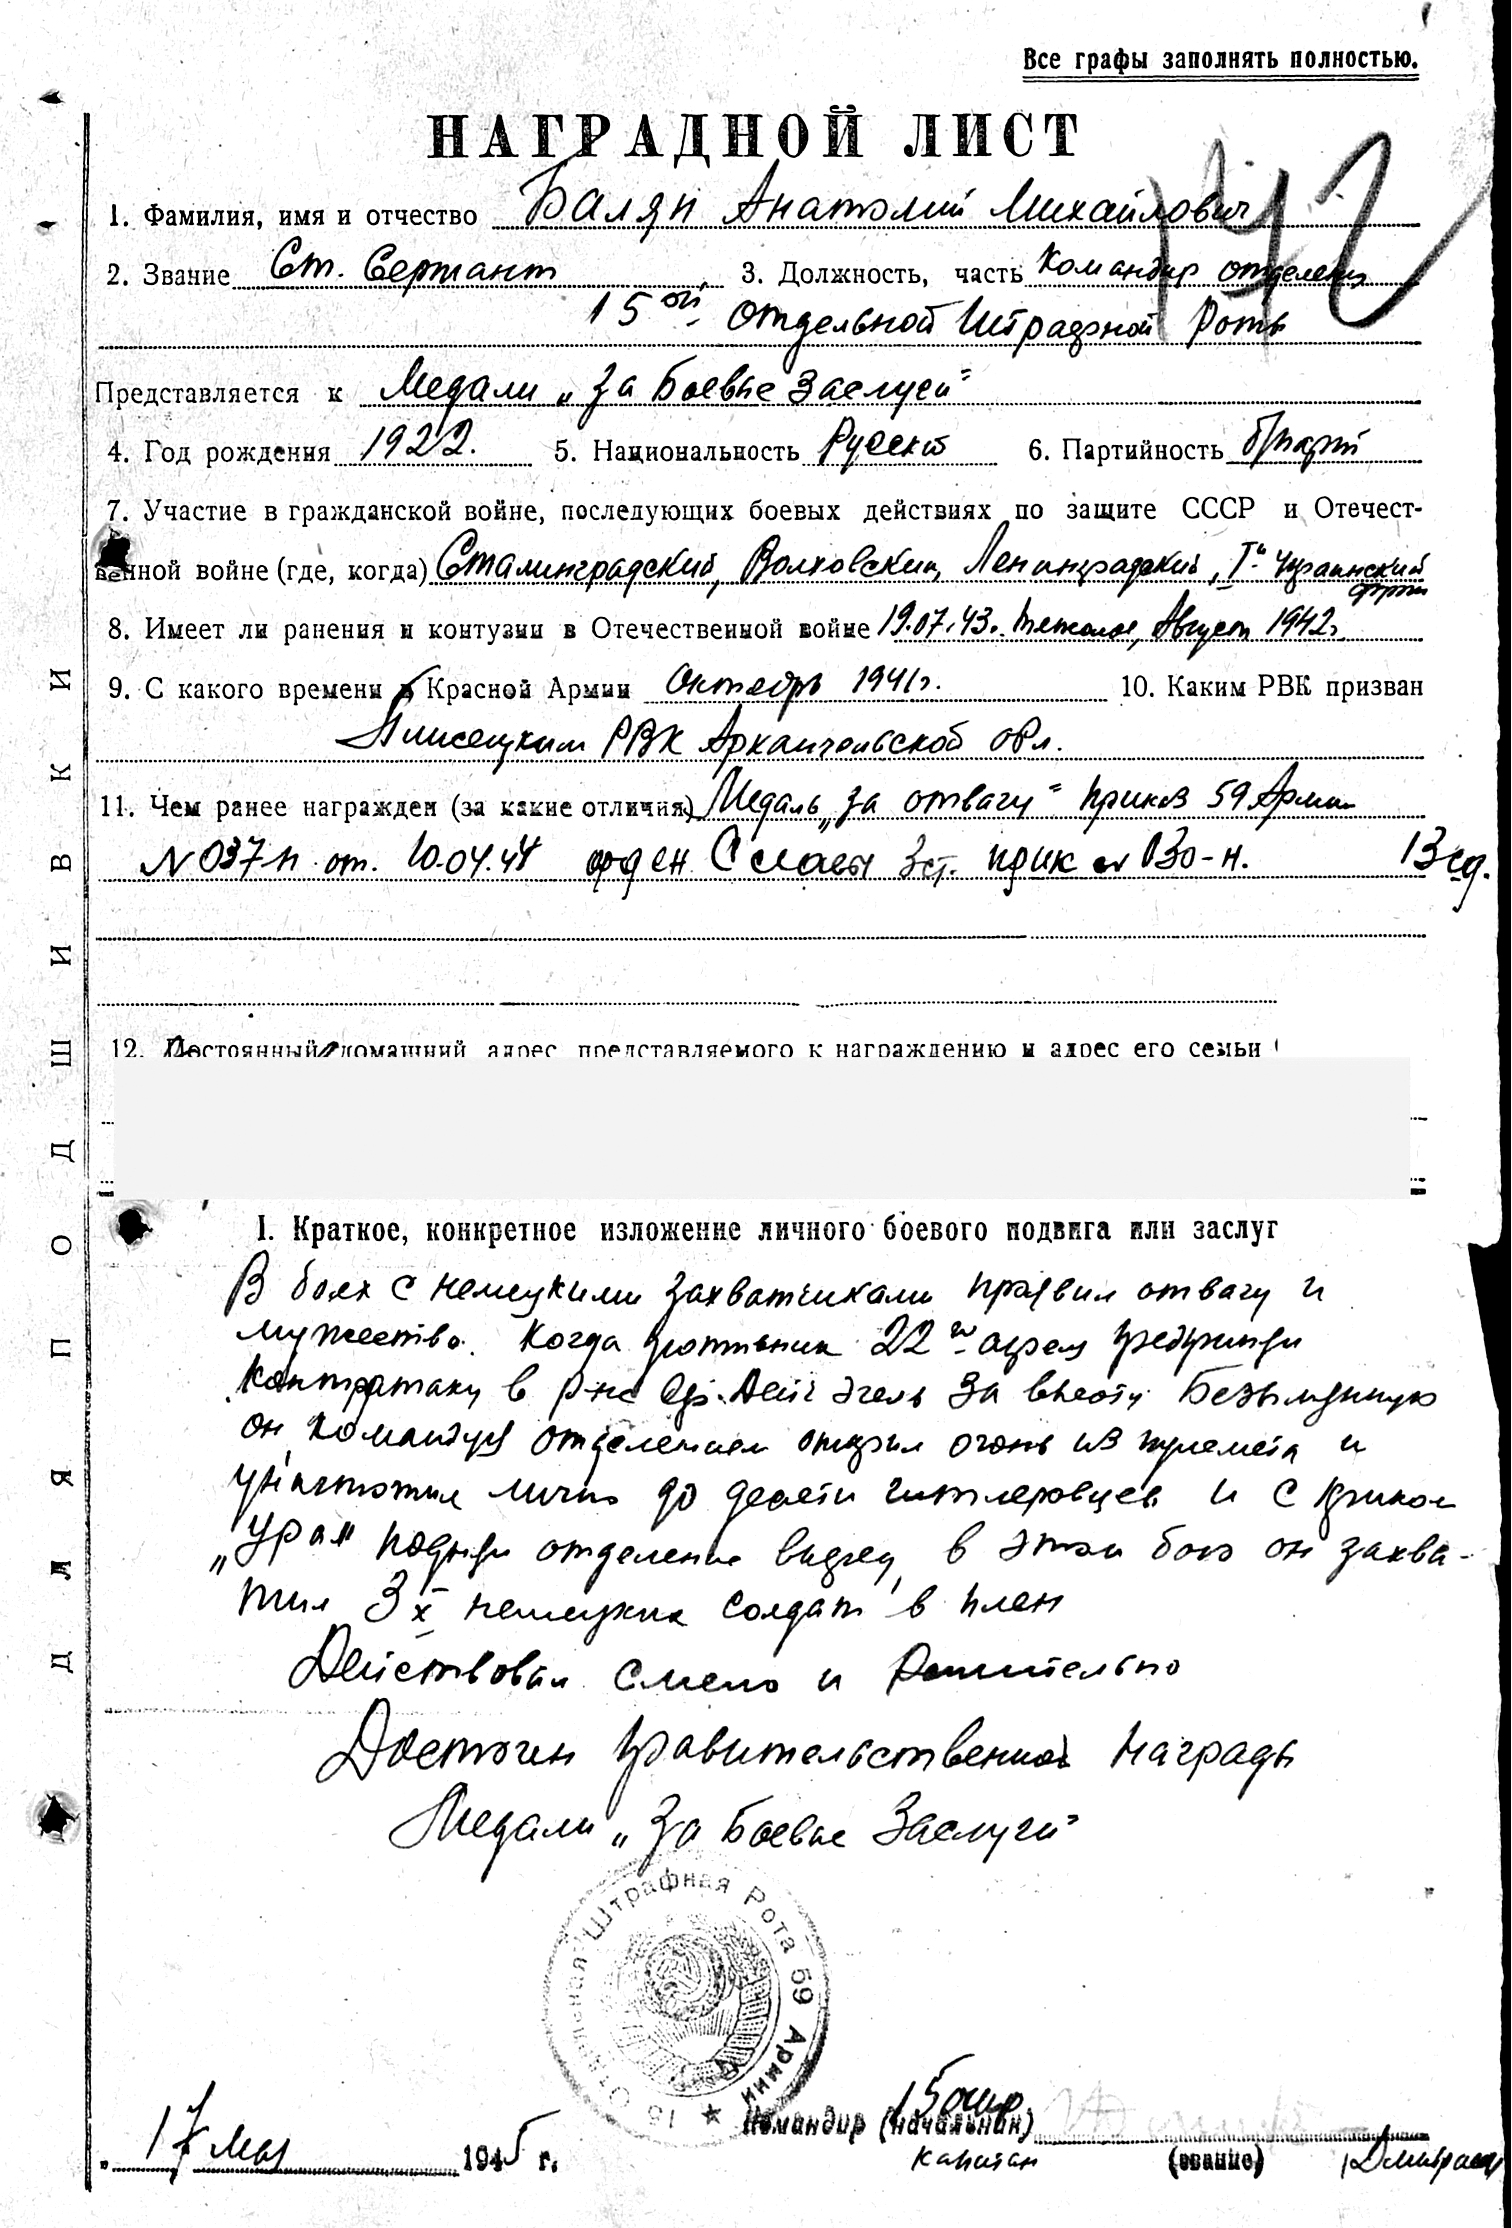 Все графы заполнять полностью.
НАГРАДНОЙ ЛИСТ
142
1. Фамилия, имя и отчество Балян Анатолий Михайлович
2. Звание Ст. Сержант 3. Должность, часть Командир отделения
15ой отдельной Штрафной Роты
Представляется к Медали „За Боевые Заслуги"
4. Год рождения 1922. 5. Национальность Русский 6. Партийность б/парт
7. Участие в гражданской войне, последующих боевых действиях по защите СССР и Отечест-
венной войне (где, когда) Сталинградский, Волховский, Ленинградский, Iй Украинский
фронт
8. Имеет ли ранения и контузии в Отечественной войне 19.07.43. тяжелое, Август 1942г.
9. С какого времени в Красной Армии Октябрь 1941г. 10. Каким РВК призван
Плисецким РВК Архангельской обл.
11. Чем ранее награжден (за какие отличия) Медаль „За отвагу" приказ 59 Армии
N 037-н от. 10.04.44 орден Славы 3 ст. прик 030-н. 13 сд.
12. Постоянный домашний адрес представляемого к награждению и адрес его семьи
I. Краткое, конкретное изложение личного боевого подвига или заслуг
В боях с немецкими захватчиками проявил отвагу и
мужество. Когда противник 22го апреля предпринял
контратаку в р-не за высоту Безымянную
он командуя отделением открыл огонь из пулемета и
уничтожил лично до десяти гитлеровцев и с криком
„Ура" поднял отделение вперед, в этом бою он захва-
тил 3х немецких солдат в плен
Действовал смело и Решительно
Достоин правительственной Награды
Медали „За Боевые Заслуги"
15 Отдельная Штрафная Рота 59 Армии
15 ошр
Командир (начальник)
17 мая 1945 г. капитан (звание)
ДЛЯ ПОДШИВКИ